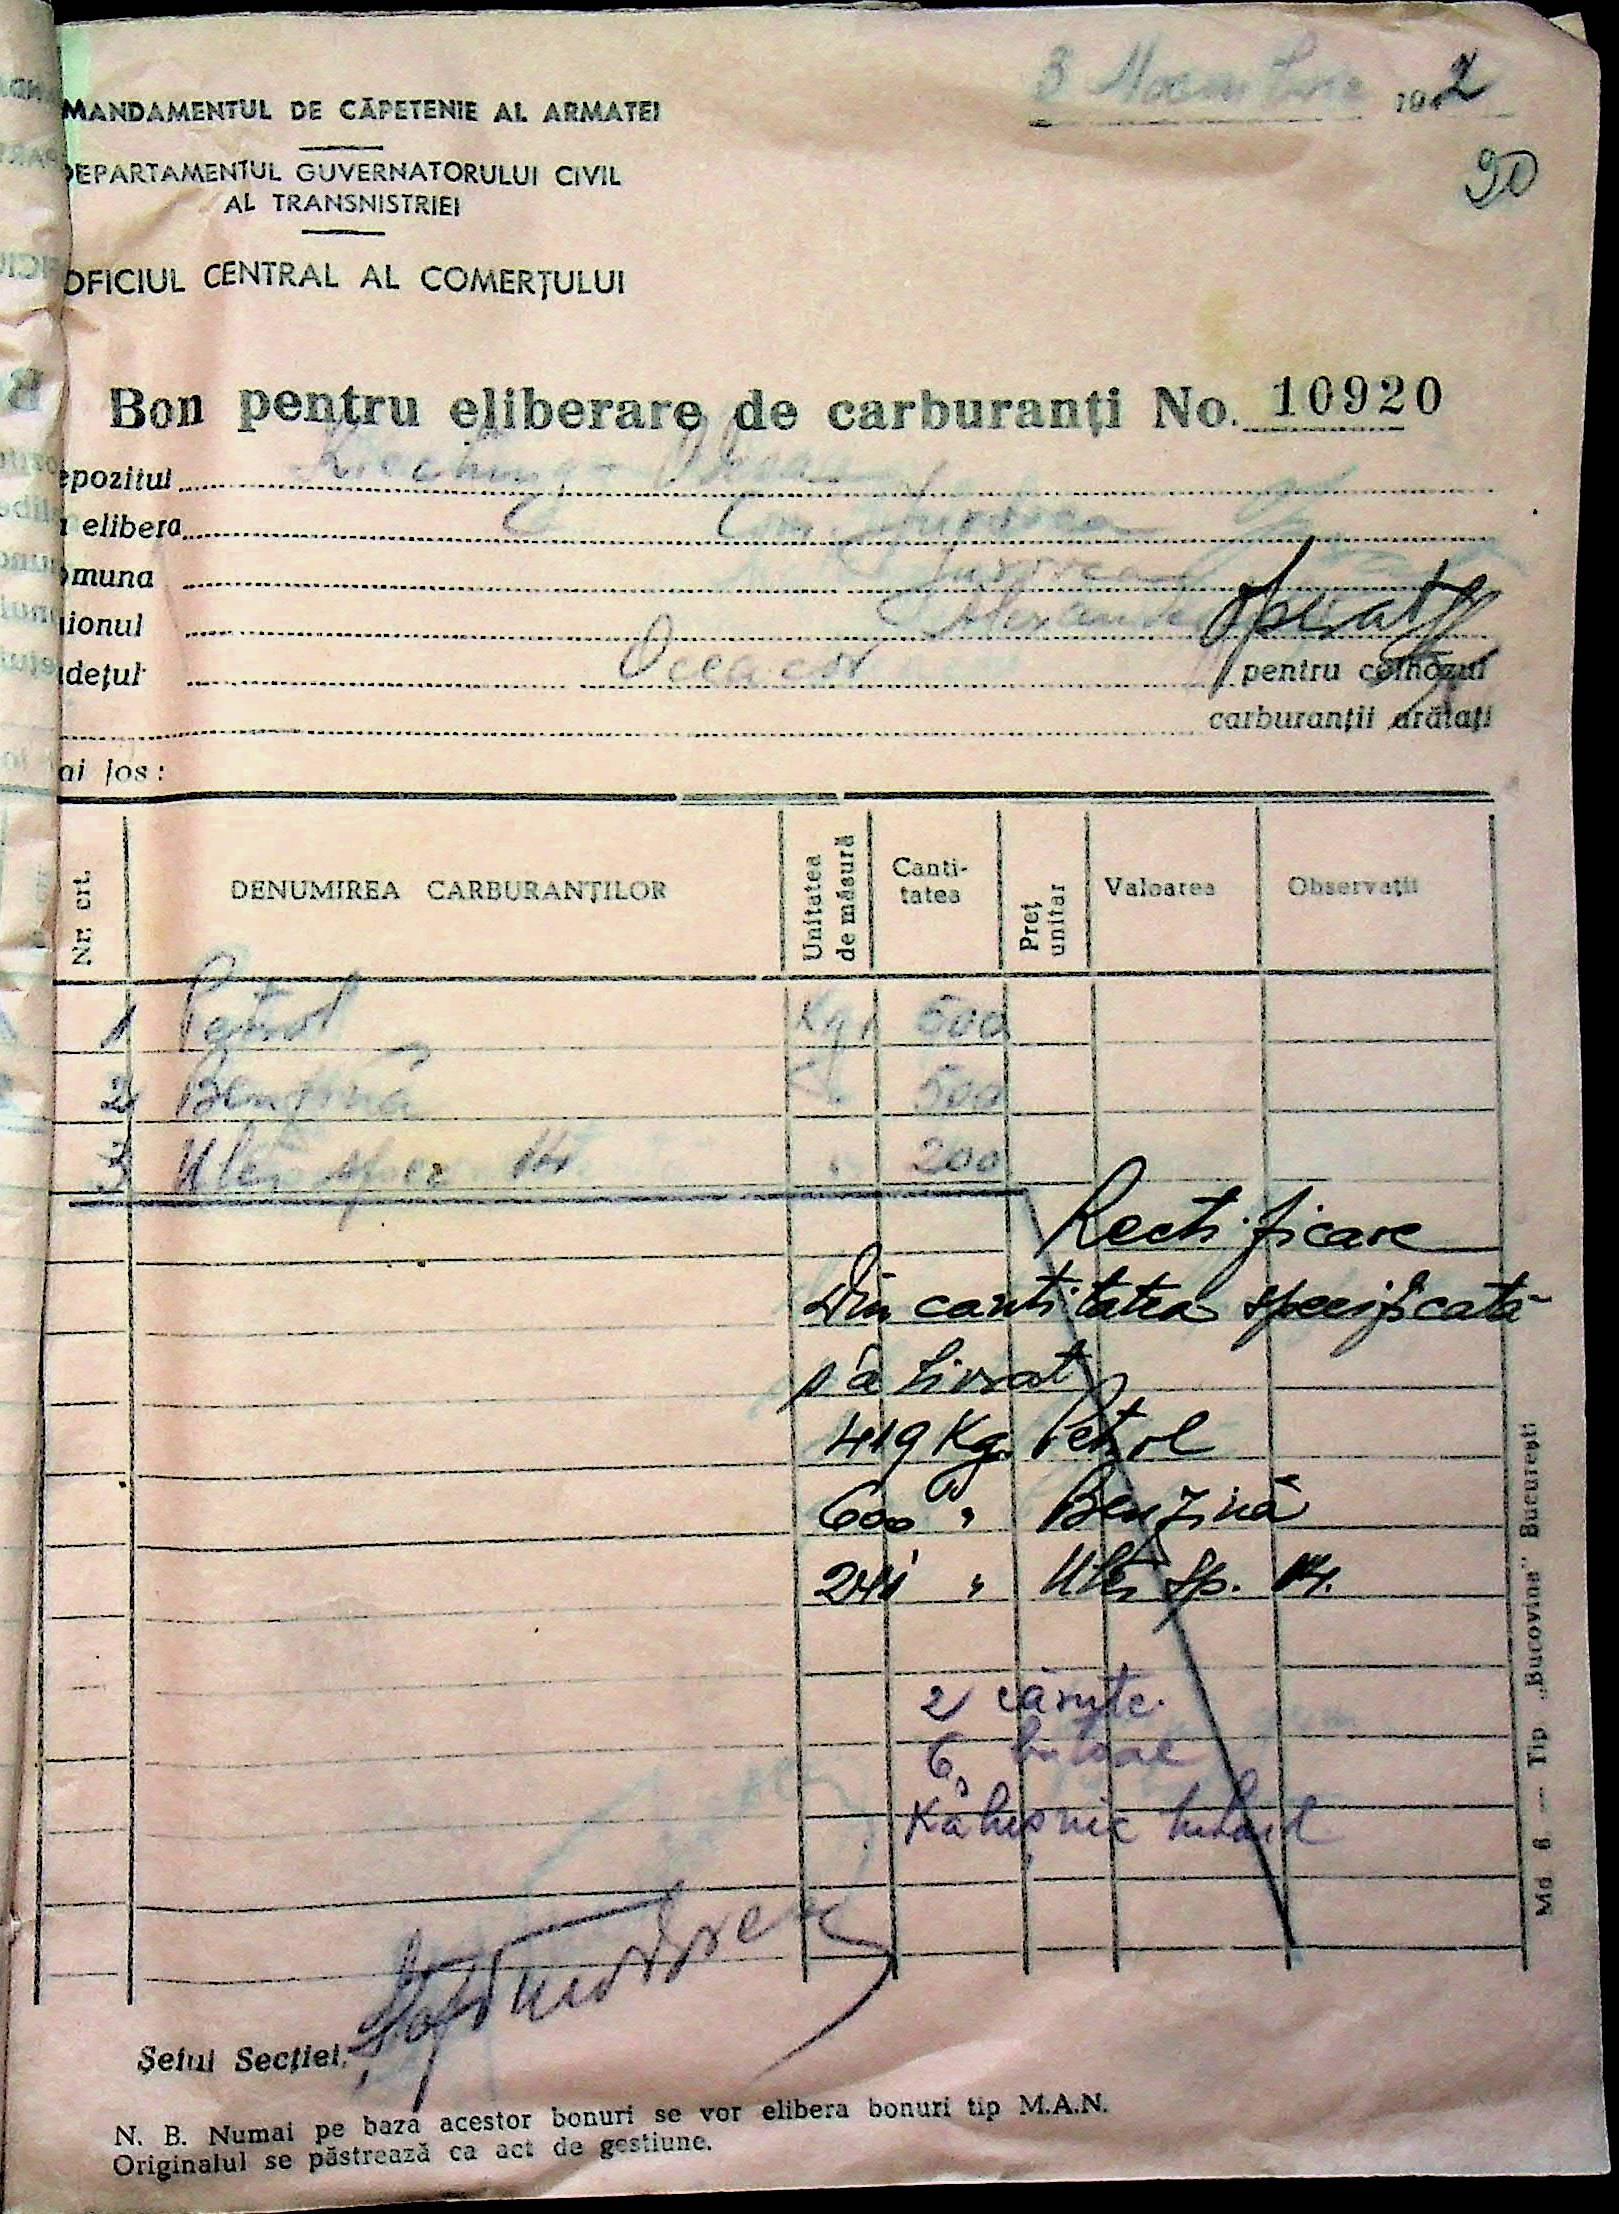 3 Noembrie 1942
90
MANDAMENTUL DE CĂPETENIE AL ARMATEI
DEPARTAMENTUL GUVERNATORULUI CIVIL
AL TRANSNISTRIEI
OFICIUL CENTRAL AL COMERȚULUI
Bon pentru eliberare de carburanți No. 10920
epozitul
elibera Com.
omuna
ionul
Operat
dețul Oceacov pentru colhozul
carburanții arătați
ai jos:
Nr. crt. DENUMIREA CARBURANȚILOR Unitatea de măsură Canti-tatea Preț unitar Valoarea Observații
1 Petrol Kg. 500
2 Benzină " 500
3 Ulei spec 14 " 200
Rectificare
Din cantitatea specificată
s'a livrat
419 Kg. Petrol
600 " Benzină
241 " Ulei sp. 14.
2 căruțe
6 butoae
Șeful Secției,
N. B. Numai pe baza acestor bonuri se vor elibera bonuri tip M.A.N.
Originalul se păstrează ca act de gestiune.
Md 6 — Tip „Bucovina" București